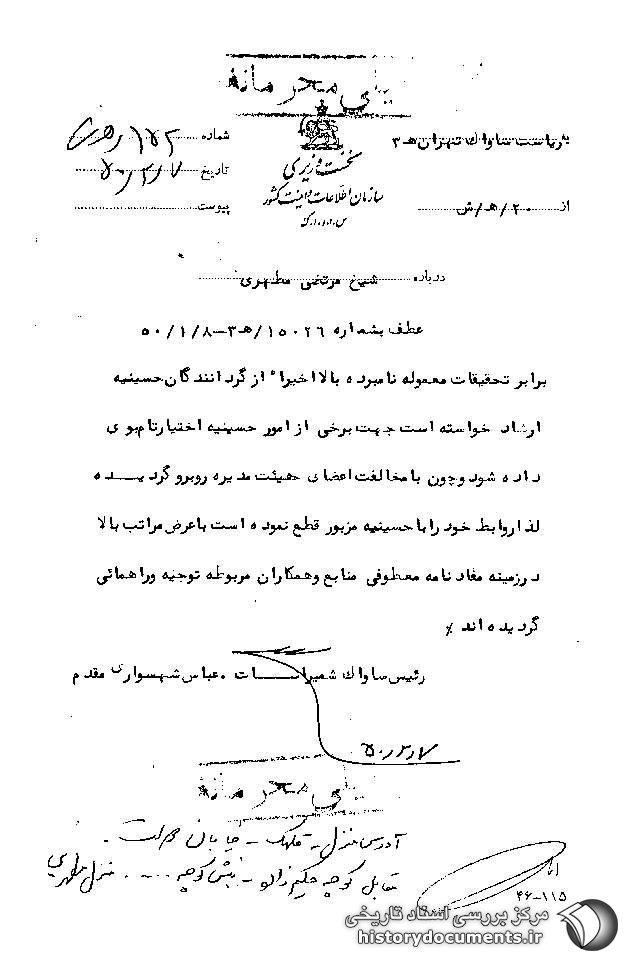 خیلی محرمانه
بریاست ساواک تهران هـ ۳
شماره ۱۶۲
نخست وزیری
تاریخ ۵۰/۲/۷
سازمان اطلاعات و امنیت کشور
از ۲۰/هـ/ش
پیوست
س.ا.و.ا.ک
درباره شیخ مرتضی مطهری
عطف بشماره ۱۵۰۲۶/هـ۳-۵۰/۱/۸
برابر تحقیقات معموله نامبرده بالا اخیراً از گردانندگان حسینیه
ارشاد خواسته است جهت برخی از امور حسینیه اختیار تام بوی
داده شود و چون با مخالفت اعضای هیئت مدیره روبرو گردیده
لذا روابط خود را با حسینیه مزبور قطع نموده است با عرض مراتب بالا
در زمینه مفاد نامه معطوفی منابع و همکاران مربوطه توجیه و راهمائی
گردیده اند ٪
رئیس ساواک شمیرانات . عباس شهسواری مقدم
۵۰/۲/۷
خیلی محرمانه
آدرس منزل - قلهک - خیابان دولت .
مقابل کوچه حکیم زاده - نبش کوچه .... منزل مطهری
۴۶-۱۱۵
مرکز بررسی اسناد تاریخی
historydocuments.ir